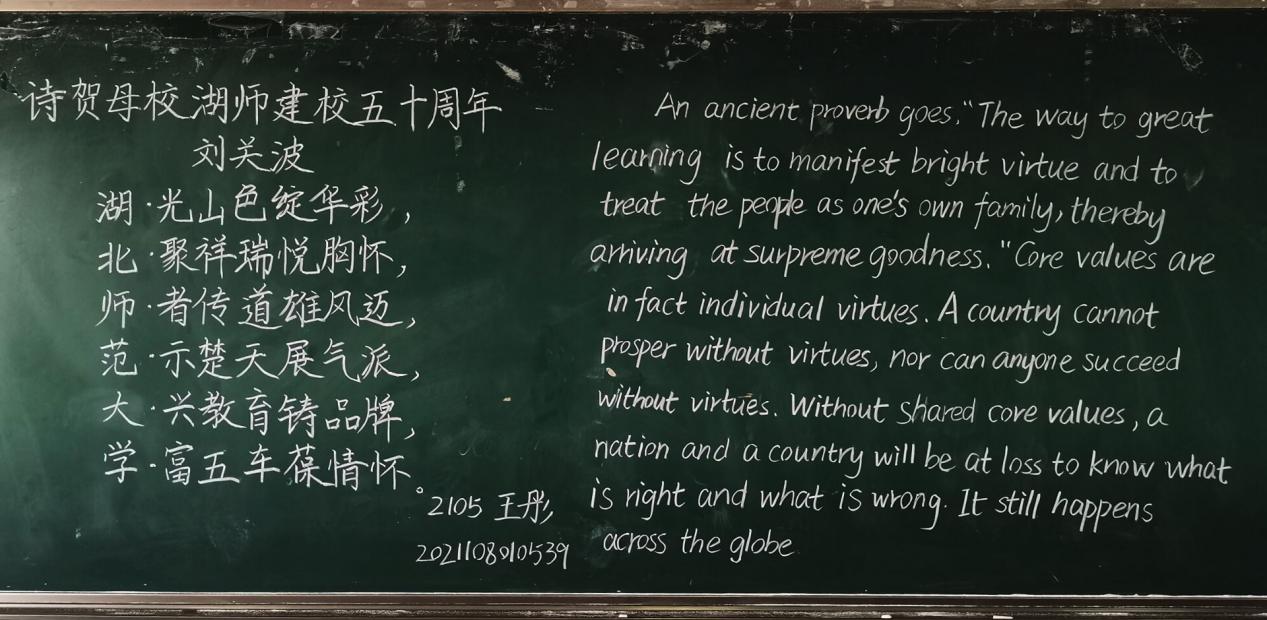 诗贺母校湖师建校五十周年
刘关波
湖·光山色绽华彩，
北·聚祥瑞悦胸怀，
师·者传道雄风迈，
范·示楚天展气派，
大·兴教育铸品牌，
学·富五车葆情怀。
2105 王彤
2021108010539
An ancient proverb goes, "The way to great
learning is to manifest bright virtue and to
treat the people as one's own family, thereby
arriving at surpreme goodness." Core values are
in fact individual virtues. A country cannot
prosper without virtues, nor can anyone succeed
without virtues. Without shared core values, a
nation and a country will be at loss to know what
is right and what is wrong. It still happens
across the globe